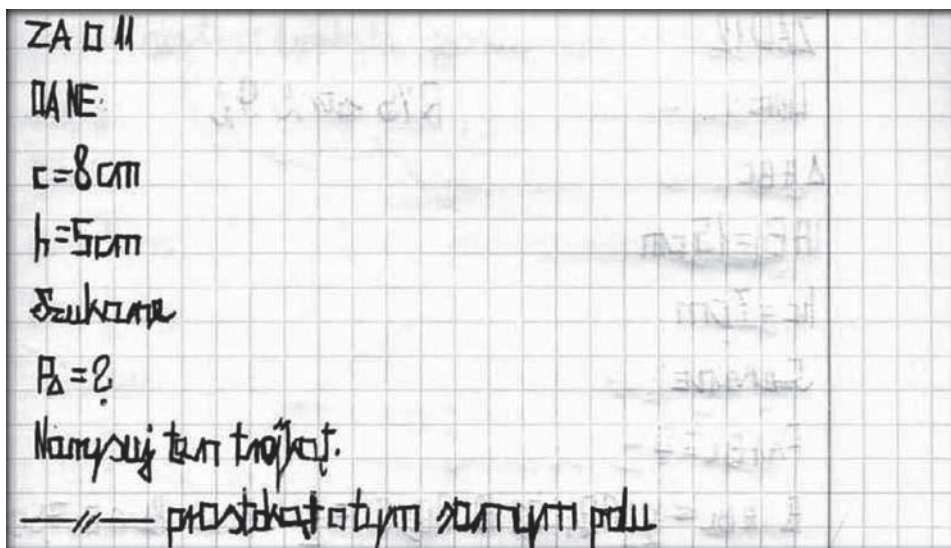 ZAD 11
DANE:
c=8cm
h=5cm
Szukane
P△=?
Narysuj ten trójkąt.
—//— prostokąt o tym samym polu